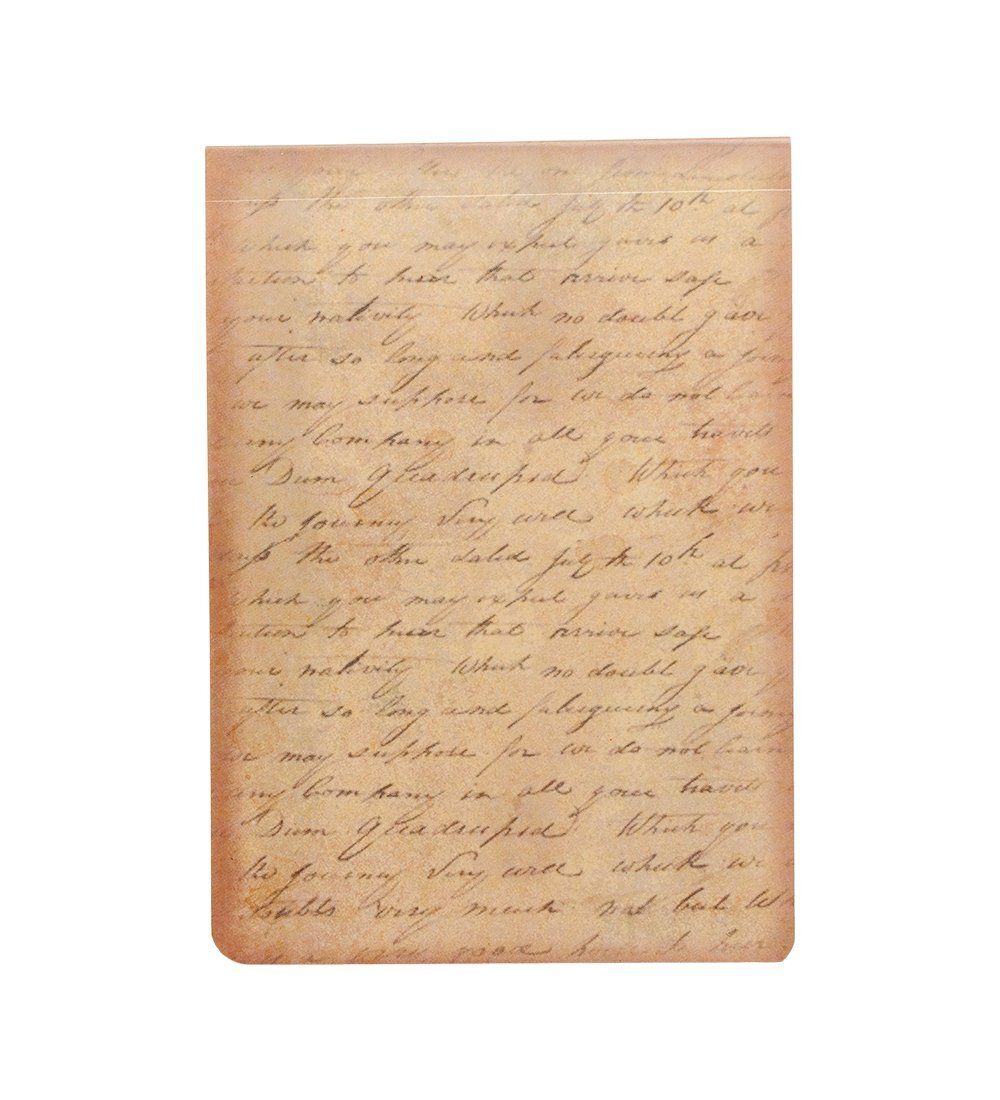 the other dated July th 10th at
which you may expect gives us a
to hear that arrive safe
your nativity Which no doubt gave
after so long and fatigueing a
we may suppose for we do not
my Company in all your travels
Dum Quadruped Which you
the journey very well which we
the other dated July th 10th at
which you may expect gives us a
to hear that arrive safe
nativity Which no doubt gave
after so long and fatigueing a
we may suppose for we do not learn
my Company in all your travels
Dum Quadruped Which you
the journey very well which we
very much not but
a good